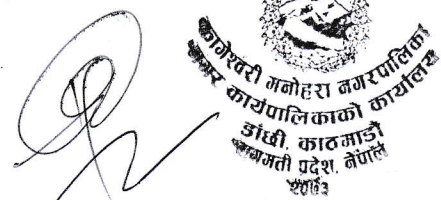 कागेश्वरी मनोहरा नगरपालिका
नगर कार्यपालिकाको कार्यालय
डांछी, काठमाडौं
बागमती प्रदेश, नेपाल
२०७३